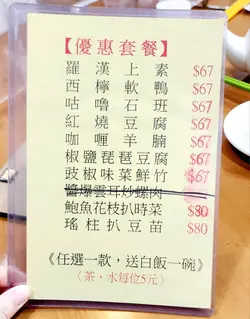 【優惠套餐】
羅漢上素 $67
西檸軟鴨 $67
咕嚕石班 $67
紅燒豆腐 $67
咖喱羊腩 $67
椒鹽琵琶豆腐 $67
豉椒味菜鮮竹 $67
醬爆雲耳炒螺肉
鮑魚花枝扒時菜 $80
瑤柱扒豆苗 $80
《任選一款，送白飯一碗》
（茶·水每位5元）